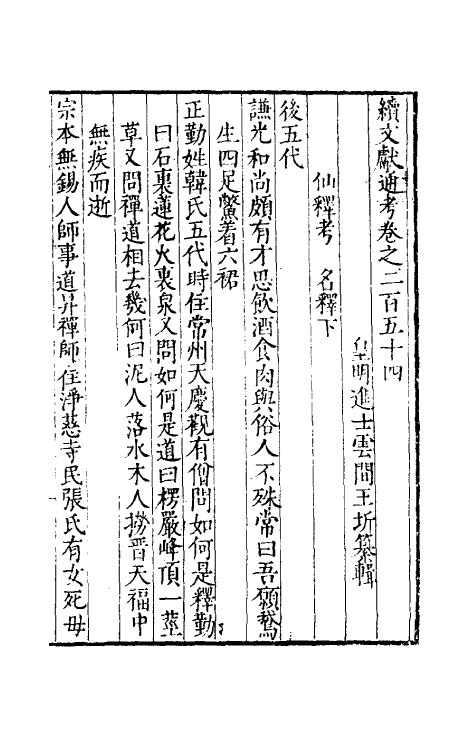 續文獻通考卷之二百五十四
皇明進士雲間王圻纂輯
仙釋考　名釋下
後五代
謙光和尚頗有才思飲酒食肉與俗人不殊常曰吾願鵞
生四足鱉着六裙
正勤姓韓氏五代時住常州天慶觀有僧問如何是釋勤
曰石裏蓮花火裏泉又問如何是道曰楞嚴峰頂一莖
草又問禪道相去幾何曰泥人落水木人撈晋天福中
無疾而逝
宗本無錫人師事道昇禪師住淨慈寺民張氏有女死毋